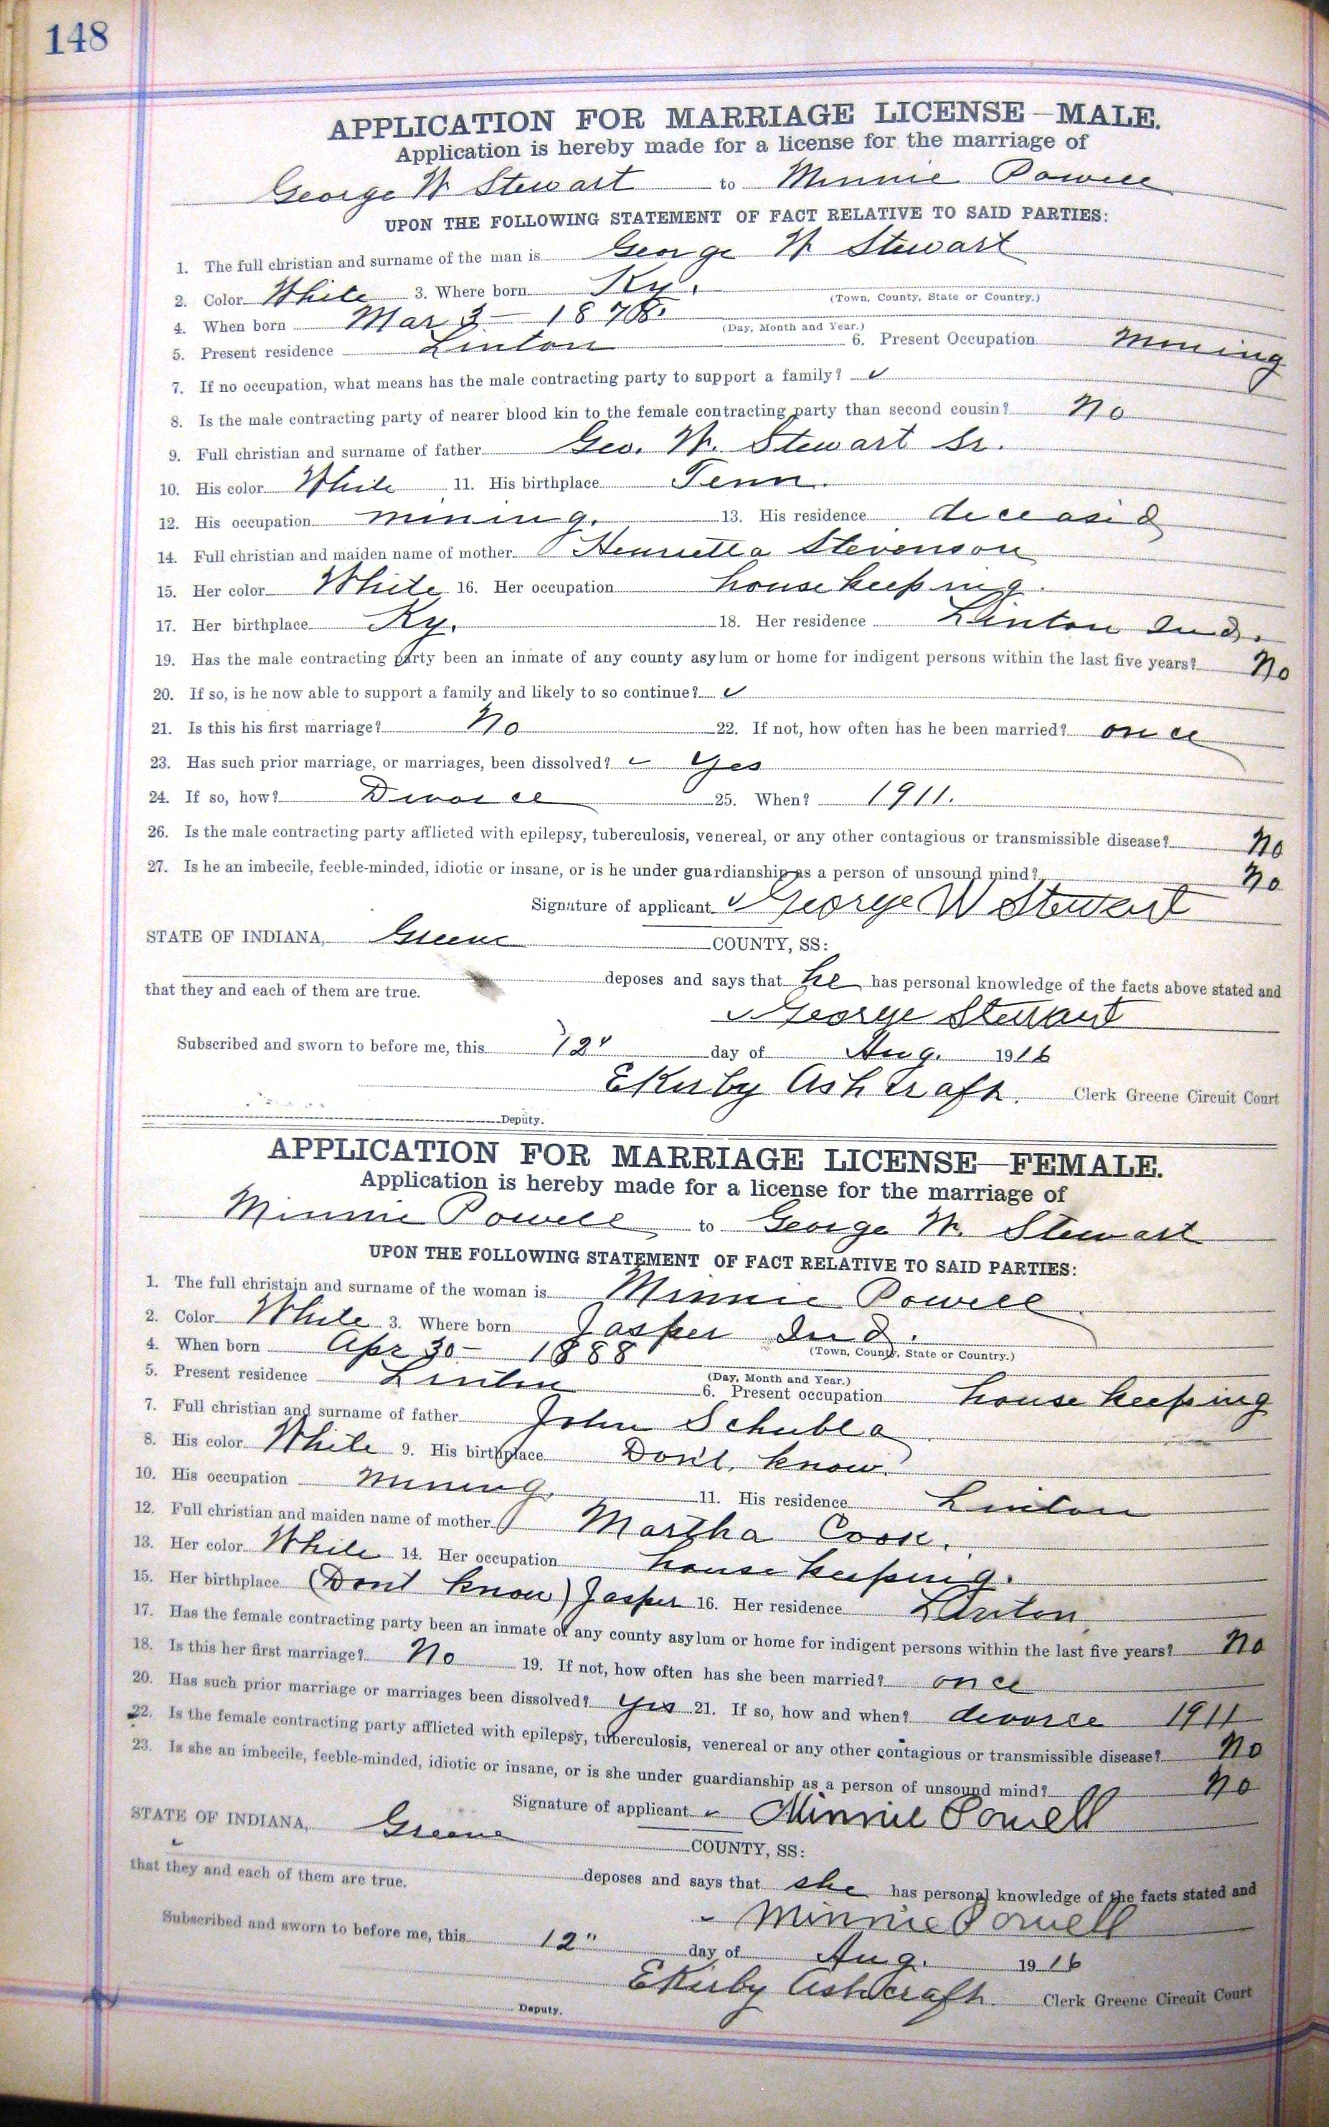 148
APPLICATION FOR MARRIAGE LICENSE—MALE.
Application is hereby made for a license for the marriage of
George W Stewart to Minnie Powell
UPON THE FOLLOWING STATEMENT OF FACT RELATIVE TO SAID PARTIES:
1. The full christian and surname of the man is George W Stewart
2. Color White 3. Where born Ky.
(Town, County, State or Country.)
4. When born Mar 3 — 1878.
(Day, Month and Year.)
5. Present residence Linton 6. Present Occupation mining
7. If no occupation, what means has the male contracting party to support a family? ✓
8. Is the male contracting party of nearer blood kin to the female contracting party than second cousin? No
9. Full christian and surname of father Geo. W. Stewart Sr.
10. His color White 11. His birthplace Tenn.
12. His occupation mining. 13. His residence deceased
14. Full christian and maiden name of mother Henrietta Stevenson
15. Her color White 16. Her occupation house keeping.
17. Her birthplace Ky. 18. Her residence Linton Ind.
19. Has the male contracting party been an inmate of any county asylum or home for indigent persons within the last five years? No
20. If so, is he now able to support a family and likely to so continue? ✓
21. Is this his first marriage? No 22. If not, how often has he been married? once
23. Has such prior marriage, or marriages, been dissolved? ✓ yes
24. If so, how? Divorce 25. When? 1911.
26. Is the male contracting party afflicted with epilepsy, tuberculosis, venereal, or any other contagious or transmissible disease? No
27. Is he an imbecile, feeble-minded, idiotic or insane, or is he under guardianship as a person of unsound mind? No
Signature of applicant ✓ George W Stewart
STATE OF INDIANA, Greene COUNTY, SS:
deposes and says that he has personal knowledge of the facts above stated and
that they and each of them are true.
✓ George Stewart
Subscribed and sworn to before me, this 12" day of Aug. 1916
E Kirby Ashcraft. Clerk Greene Circuit Court
Deputy.
APPLICATION FOR MARRIAGE LICENSE—FEMALE.
Application is hereby made for a license for the marriage of
Minnie Powell to George W. Stewart
UPON THE FOLLOWING STATEMENT OF FACT RELATIVE TO SAID PARTIES:
1. The full christain and surname of the woman is Minnie Powell
2. Color White 3. Where born Jasper Ind.
(Town, County, State or Country.)
4. When born Apr 30 — 1888
(Day, Month and Year.)
5. Present residence Linton 6. Present occupation house keeping
7. Full christian and surname of father John Schubla
8. His color White 9. His birthplace Don't know.
10. His occupation mining. 11. His residence Linton
12. Full christian and maiden name of mother Martha Cook.
13. Her color White 14. Her occupation house keeping.
15. Her birthplace (Dont know) Jasper 16. Her residence Linton
17. Has the female contracting party been an inmate of any county asylum or home for indigent persons within the last five years? No
18. Is this her first marriage? No 19. If not, how often has she been married? once
20. Has such prior marriage or marriages been dissolved? yes 21. If so, how and when? divorce 1911
22. Is the female contracting party afflicted with epilepsy, tuberculosis, venereal or any other contagious or transmissible disease? No
23. Is she an imbecile, feeble-minded, idiotic or insane, or is she under guardianship as a person of unsound mind? No
Signature of applicant ✓ Minnie Powell
STATE OF INDIANA, Greene COUNTY, SS:
deposes and says that she has personal knowledge of the facts stated and
that they and each of them are true.
Minnie Powell
Subscribed and sworn to before me, this 12" day of Aug. 1916
E Kirby Ashcraft. Clerk Greene Circuit Court
Deputy.